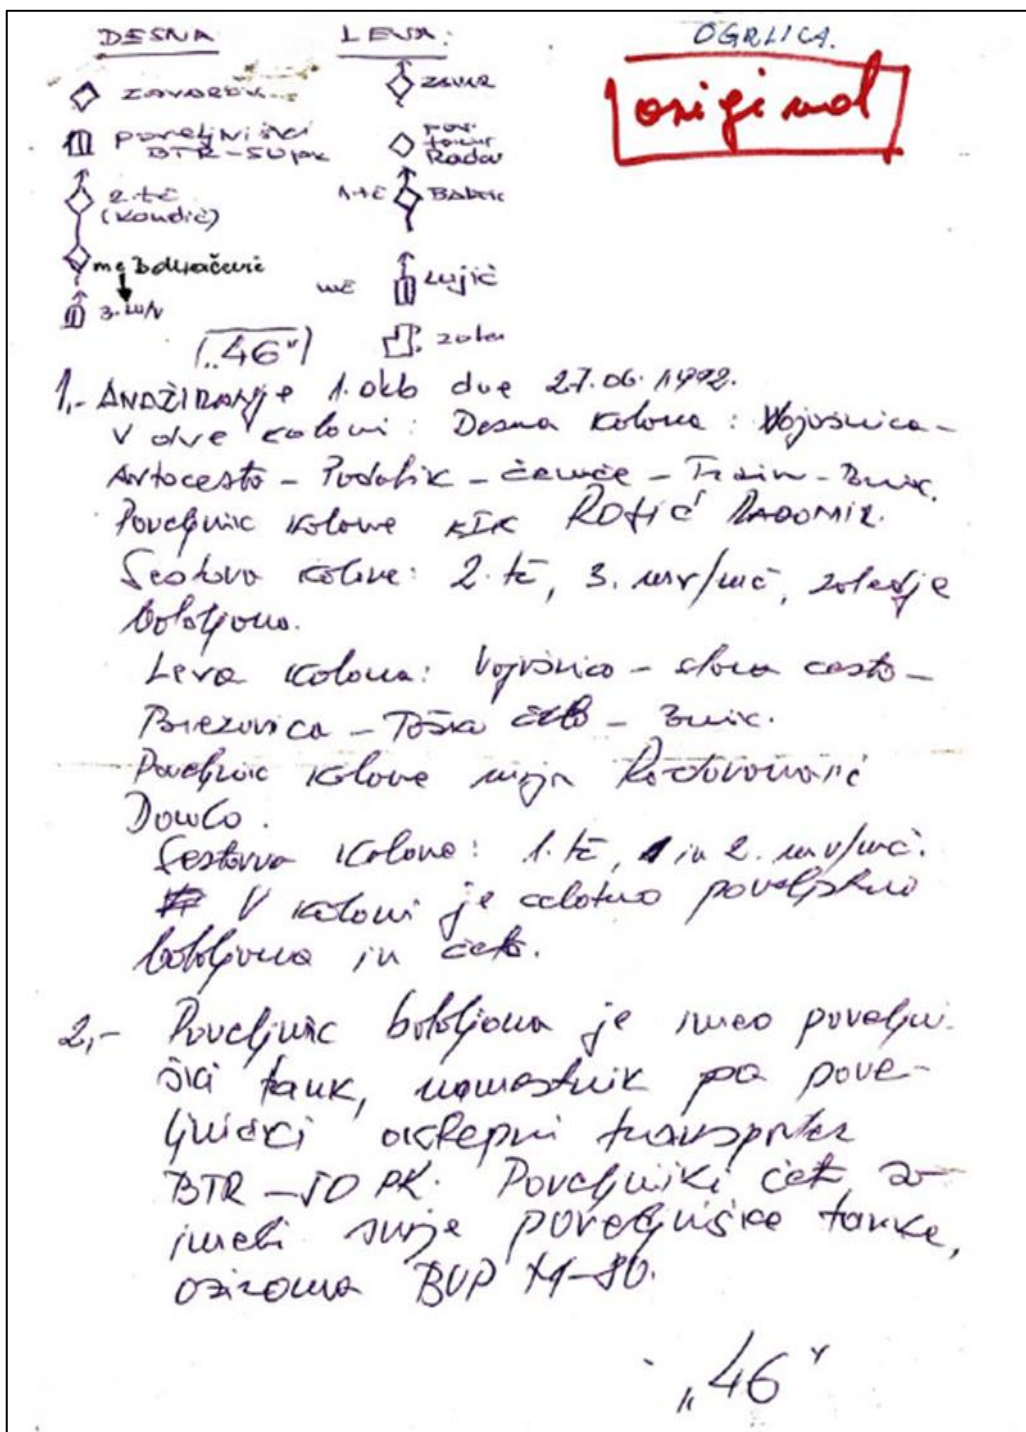 DESNA
ZAVAROV.
poveljniški
BTR-50pk
2.tč
(Kondić)
mč Bdijačević
3.
LEVA:
zavar
pov.
Radov
1.tč
mč Lujić
OGRLICA.
original
(„46")
1,- ANGAŽIRANJE 1. okb dne 27.06.1992.
V dve koloni: Desna kolona: Vojašnica-
Avtocesta - Podutik - - - Brnik.
Poveljnik kolone KIK ROFIĆ RADOMIR.
Sestava kolone: 2. tč, 3. mv/mč, zaledje
bataljona.
Leva kolona: Vojašnica - stara cesta -
Brezovica - Toško čelo - Brnik.
Poveljnik kolone major Radovanović
Sestava kolone: 1. tč, 1 in 2. mv/mč.
V koloni je celotno poveljstvo
bataljona in čet.
2,- Poveljnik bataljona je imeo poveljni-
ški tank, namestnik pa pove-
ljniški oklepni transporter
BTR-50 PK. Poveljniki čet so
imeli svoje poveljniške tanke,
oziroma BVP M-80.
„46"